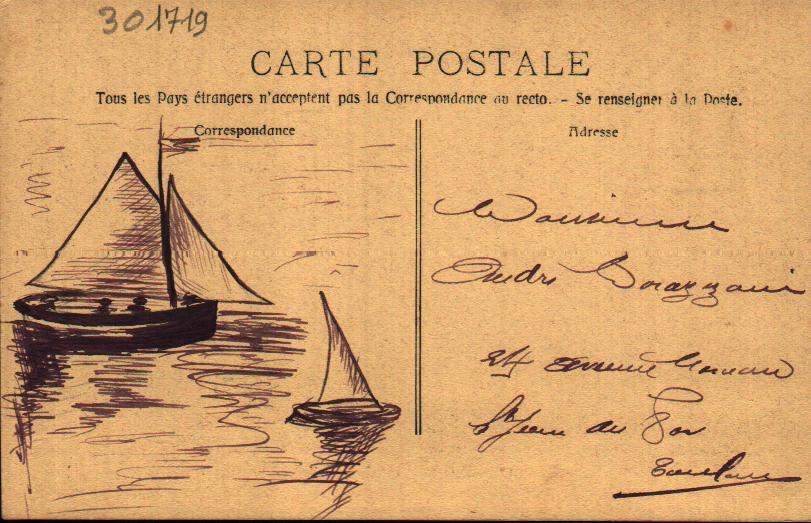 301719
CARTE POSTALE
Tous les Pays étrangers n'acceptent pas la Correspondance au recto. - Se renseigner à la Poste.
Correspondance
Adresse
Monsieur
André Borazzani
24 avenue
St Jean du Var
Toulon